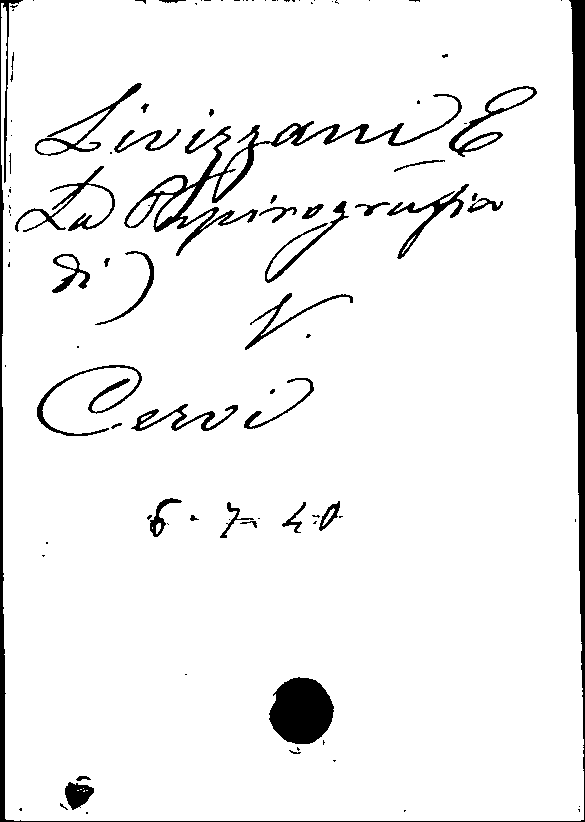 Livizzani E
(La Papirografia
di)
V.
Cervi
6. 7. 40